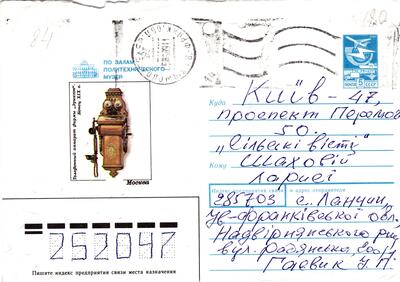 84
ПО ЗАЛАМ
ПОЛИТЕХНИЧЕСКОГО
МУЗЕЯ
Телефонный аппарат фирмы „Эриксон".
Конец XIX в.
Москва
5
Куда
Київ - 47,
проспект Перемоги
50.
„Сільські вісті"
Кому
Шаховій
Ларисі
Индекс предприятия связи и адрес отправителя
285703 с. Ланчин,
Ів-Франківської обл.
Надвірнянського р-н
вул. Радянська,
Гаєвик
252047
Пишите индекс предприятия связи места назначения